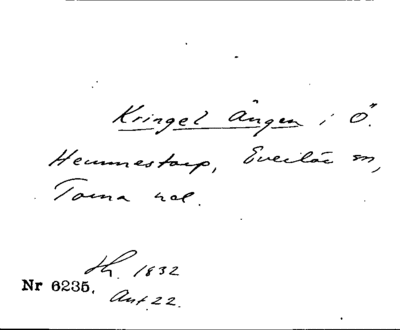 Kringel Ängen i Ö.
Hemmestorp, Everlöv sn,
Torna hd.
Sk. 1832
Nr 6235.
Ant. 22.